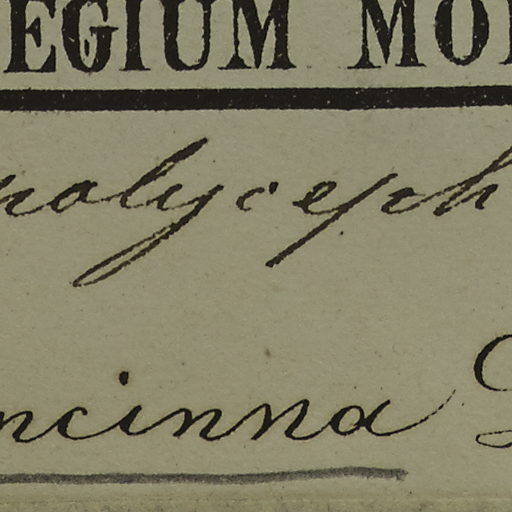 EGIUM MO
polyceph
ncinna